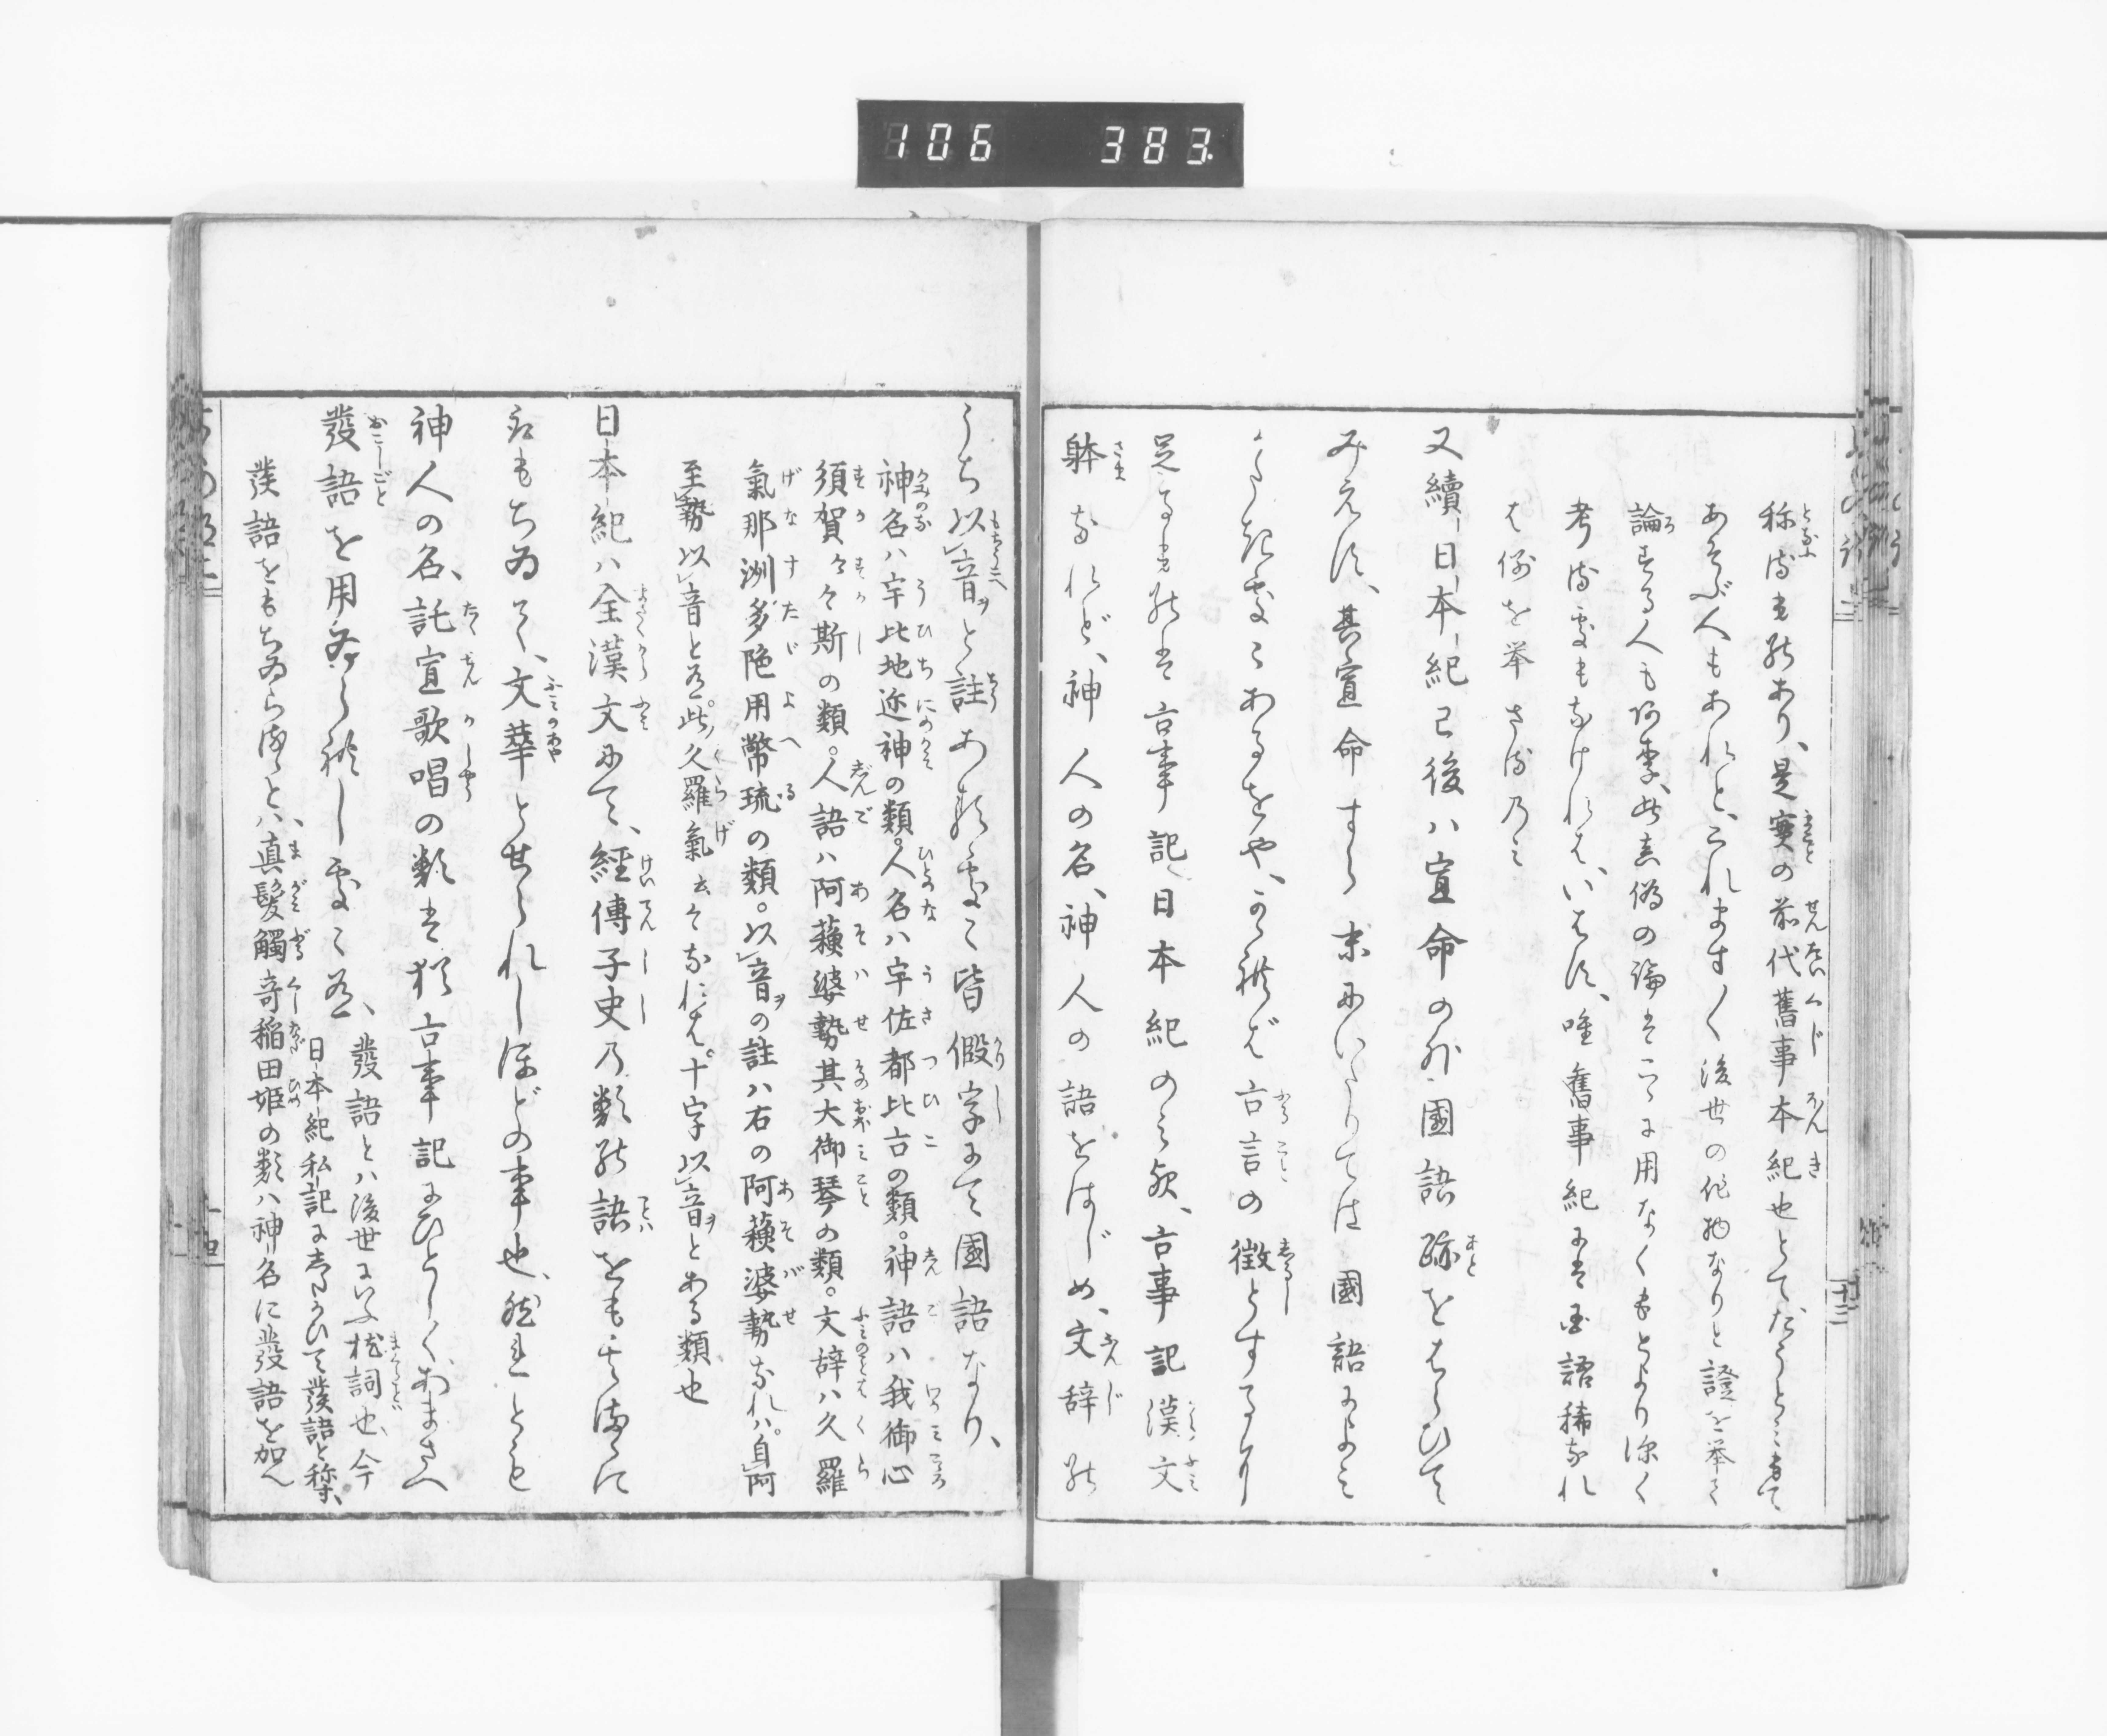 106 383
称するものあり、是実の前代舊事本紀也とてたうとみきて
あそぶ人もあれと、これまさしく後世の作物なりと證を挙て
論する人も 此真偽の論はこゝに用なくもとより深く
考る事もなけれは、いはす、唯舊事紀には国語稀なれ
は例を挙さるのみ
又續日本紀已後ハ宣命の外國語跡をはらひて
みえす、其宣命すら末にいたりては國語によみ
かたき事あるをや、されば古言の徴とするにたり
足るものは古事記日本紀のみ歟、古事記漢文
躰なれど、神人の名、神人の語をはじめ、文辞の
うち以音と註ある事は皆假字にて國語なり、
神名ハ宇比地迩神の類。人名ハ宇佐都比古の類。神語ハ我御心
須賀々々斯の類。人語ハ阿蘓婆勢其大御琴の類。文辞ハ久羅
氣那洲多陁用幣琉の類。以音の註ハ右の阿蘓婆勢なれハ。自阿
至勢以音と有。此久羅氣云々なれは。十字以音とある類也
日本紀ハ全漢文にて、經傳子史乃類の語をもてさらに
もちゐて、文華とせられしほどの事也、然れとも
神人の名、託宣歌唱の類は猶古事記にひとしく、あまさへ
發語を用ゐられし事も有、
發語とハ後世にいふ枕詞也、今
日本紀私記にしたかひて發語と称、
發語をもちゐらるとハ、真髪觸奇稲田姫の類ハ神名に發語を加へ